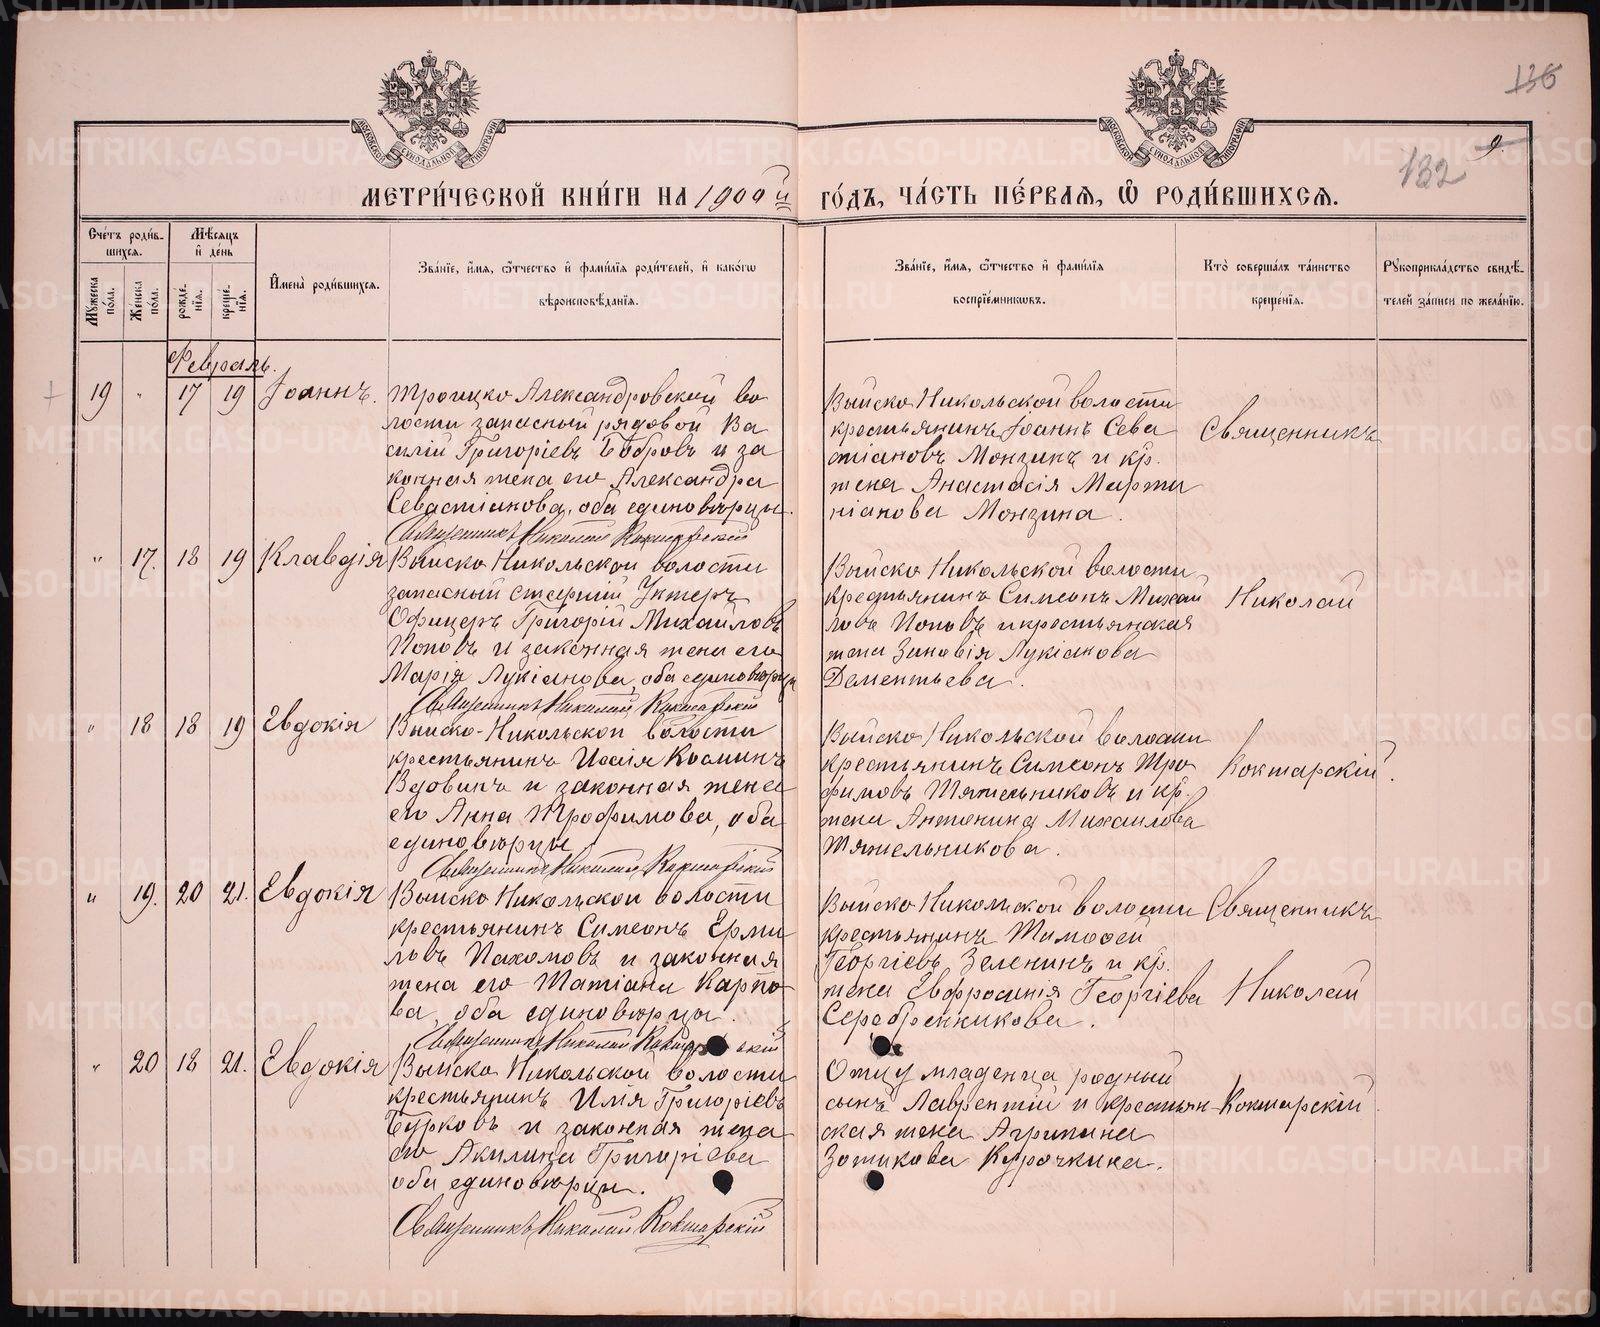 136
9.
132
МОСКОВСКОЙ СѴНОДАЛЬНОЙ ТИПОГРАФІИ
МОСКОВСКОЙ СѴНОДАЛЬНОЙ ТИПОГРАФІИ
МЕТРИ́ЧЕСКОЙ КНИ́ГИ НА 1900й ГО́ДЪ, ЧА́СТЬ ПЕ́РВАѦ, Ѽ РОДИ́ВШИХСѦ.
Сче́тъ роди́в-
шихся.
Мѣ́сяцъ
и҆ де́нь
Му́жеска по́ла.
Же́нска по́ла.
рожде́-
нїѧ.
креще́-
нїѧ.
И҆мена̀ роди́вшихся.
Зва́нїе, и҆́мѧ, ѻ҆́тчество и҆ фами́лїѧ роди́телей, и҆ како́гѡ
вѣроисповѣ́данїѧ.
Зва́нїе, и҆́мѧ, ѻ҆́тчество и҆ фами́лїѧ
воспрїе́мникѡвъ.
Кто̀ соверша́лъ та́инство
креще́нїѧ.
Рꙋкоприкла́дство свидѣ́-
телей за́писи по жела́нїю.
Февраль.
19 " 17 19 Іоаннъ.
Троицко Александровской во
лости запасный рядовой Ва
силій Григоріевъ Бобровъ и за
конная жена его Александра
Севастіанова, оба единовѣрцы.
Священникъ Николай Кокшарскій
Выйско Никольской волости
крестьянинъ Іоаннъ Сева
стіановъ Монзинъ и кр.
жена Анастасія Марти
ніанова Монзина.
Священникъ
" 17. 18 19 Клавдія
Выйско Никольской волости
запасный старшій Унтеръ
Офицеръ Григорій Михаиловъ
Поповъ и законная жена его
Марія Лукіанова, оба единовѣрцы
Священникъ Николай Кокшарскій
Выйско Никольской волости
крестьянинъ Симеонъ Михаи
ловъ Поповъ и крестьянская
жена Зиновія Лукіанова
Дементьева.
Николай
" 18 18 19 Евдокія
Выйско-Никольской волости
крестьянинъ Исаія Косминъ
Вдовинъ и законная жена
его Анна Трофимова, оба
единовѣрцы.
Священникъ Николай Кокшарскій
Выйско Никольской волости
крестьянинъ Симеонъ Тро
фимовъ Тяжельниковъ и кр.
жена Антонина Михаилова
Тяжельникова.
Кокшарскій.
" 19. 20 21. Евдокія
Выйско Никольской волости
крестьянинъ Симеонъ Ерми
ловъ Пахомовъ и законная
жена его Татіана Карпо
ва, оба единовѣрцы.
Священникъ Николай Кокшарскій
Выйско Никольской волости
крестьянинъ Тимоѳей
Георгіевъ Зеленинъ и кр.
жена Евфросинія Георгіева
Серебренникова.
Священникъ
Николай
" 20 18 21. Евдокія
Выйско Никольской волости
крестьянинъ Илія Григоріевъ
Бурковъ и законная жена
его Акилина Григоріева
оба единовѣрцы.
Священникъ Николай Кокшарскій
Отцу младенца родный
сынъ Лаврентій и крестьян
ская жена Агрипина
Зотикова Курочкина.
Кокшарскій
METRIKI.GASO-URAL.RU